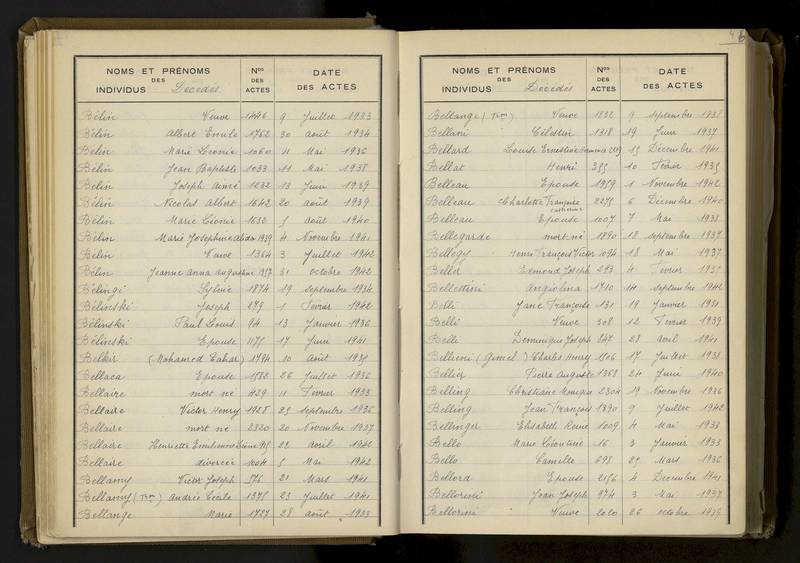 NOMS ET PRÉNOMS DES INDIVIDUS Décédés | Nos DES ACTES | DATE DES ACTES
Bélin Veuve 1446 9 Juillet 1933
Bélin Albert Emile 1762 30 août 1934
Bélin Marie Léonie 1060 11 Mai 1936
Bélin Jean Baptiste 1033 11 Mai 1938
Belin Joseph aimé 1232 13 Juin 1939
Bélin Nicolas Albert 1642 20 août 1939
Bélin Marie Léonie 1638 5 août 1940
Bélin Marie Josephine 1939 4 Novembre 1941
Bélin Veuve 1364 3 Juillet 1942
Bélin Jeanne Anna augustine 31 octobre 1942
Bélingi Sylvie 1874 19 septembre 1934
Bélinski Joseph 279 1 Fevrier 1942
Bélinski Paul Louis 94 13 Janvier 1936
Bélinski Epouse 1175 17 Juin 1941
Belkir (Mohamed 1794 10 août 1935
Bellaca Epouse 1588 26 Juillet 1936
Bellaire mort né 429 11 Fevrier 1933
Bellaire Victor Henry 1928 25 septembre 1936
Bellaire mort né 2320 20 Novembre 1937
Bellaire Henriette 22 avril 1941
Bellaire divorcée 1004 5 Mai 1942
Bellamy Victor Joseph 576 21 Mars 1941
Bellamy Andrée Cécile 1375 23 Juillet 1941
Bellange Marie 1727 28 août 1933
46
NOMS ET PRÉNOMS DES INDIVIDUS Décédés | Nos DES ACTES | DATE DES ACTES
Bellange Veuve 1832 9 septembre 1938
Bellani Célestin 1318 19 Juin 1937
Bellard Louise Ernestine 15 Décembre 1941
Bellat Henri 355 10 Fevrier 1935
Belleau Epouse 1959 1 Novembre 1942
Belleau Charlotte Françoise Catherine 2275 6 Décembre 1940
Belleau Epouse 1007 7 Mai 1938
Bellegarde mort né 1890 18 septembre 1937
Bellegy Henri François Victor 1094 18 Mai 1937
Beller Edmond Joseph 293 4 Fevrier 1937
Bellettini Angiolina 1710 14 septembre 1942
Belli Jane Françoise 131 19 Janvier 1931
Belli Veuve 308 12 Fevrier 1939
Belli Dominique Joseph 847 28 avril 1941
Belliéni Charles Henry 1506 17 Juillet 1938
Bellier Pierre Auguste 1368 24 Juin 1940
Belling Christiane 2304 19 Novembre 1936
Belling Jean François 1390 9 Juillet 1942
Bellinger Elisabeth Reine 1009 4 Mai 1938
Bello Marie Léontine 16 3 Janvier 1933
Bello Camille 698 25 Mars 1936
Bellora Epouse 2156 4 Décembre 1941
Bellorini Jean Joseph 974 3 Mai 1937
Bellorini Veuve 2020 26 octobre 1939